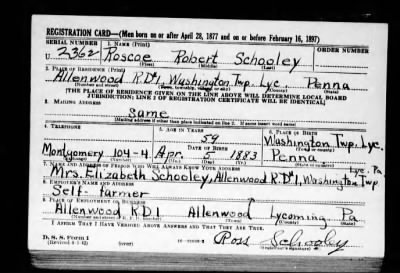 REGISTRATION CARD—(Men born on or after April 28, 1877 and on or before February 16, 1897)
SERIAL NUMBER 1. NAME (Print) ORDER NUMBER
U 2362 Roscoe Robert Schooley
(First) (Middle) (Last)
2. PLACE OF RESIDENCE (Print)
Allenwood R.D#1, Washington Twp. Lyc. Penna
(Number and street) (Town, township, village, or city) (County) (State)
[THE PLACE OF RESIDENCE GIVEN ON THE LINE ABOVE WILL DETERMINE LOCAL BOARD
JURISDICTION; LINE 2 OF REGISTRATION CERTIFICATE WILL BE IDENTICAL]
3. MAILING ADDRESS
Same
[Mailing address if other than place indicated on line 2. If same insert word same]
4. TELEPHONE 5. AGE IN YEARS 6. PLACE OF BIRTH
59 Washington Twp. Lyc.
DATE OF BIRTH (Town or county)
Montgomery 104-4 Apr. 5 1883 Penna
(Exchange) (Number) (Mo.) (Day) (Yr.) (State or country)
7. NAME AND ADDRESS OF PERSON WHO WILL ALWAYS KNOW YOUR ADDRESS Lyc. Pa
Mrs. Elizabeth Schooley, Allenwood R.D#1, Washington Twp
8. EMPLOYER'S NAME AND ADDRESS
Self- farmer
9. PLACE OF EMPLOYMENT OR BUSINESS
Allenwood R.D 1 Allenwood Lycoming Pa
(Number and street or R. F. D. number) (Town) (County) (State)
I AFFIRM THAT I HAVE VERIFIED ABOVE ANSWERS AND THAT THEY ARE TRUE.
D. S. S. Form 1
(Revised 4-1-42) Ross Schooley
(Registrant's signature)